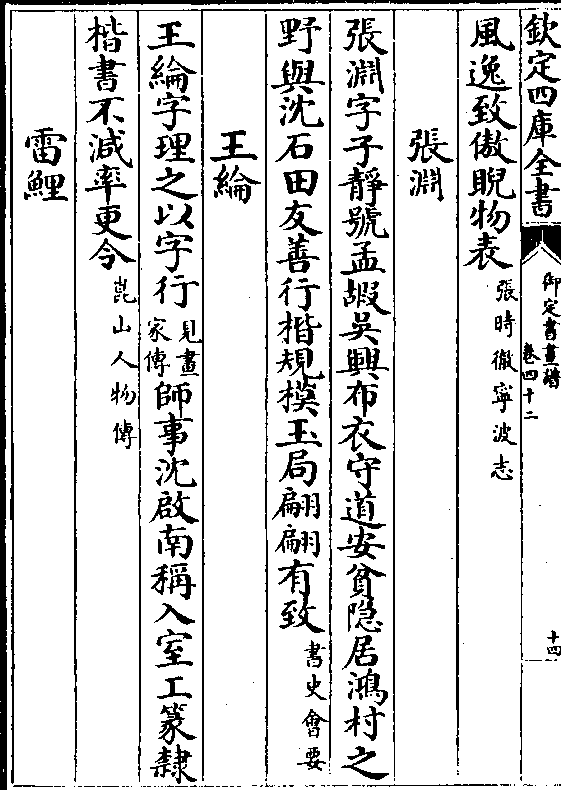 欽定四庫全書
御定書畫譜
卷四十二
十四
風逸致傲睨物表張時徹寧波志
張淵
張淵字子靜號孟嘏吳興布衣守道安貧隐居鴻村之
野與沈石田友善行楷規模玉局翩翩有致書史會要
王綸
王綸字理之以字行見畫家傳師事沈啟南稱入室工篆隸
楷書不減率更令崑山人物傳
雷鯉